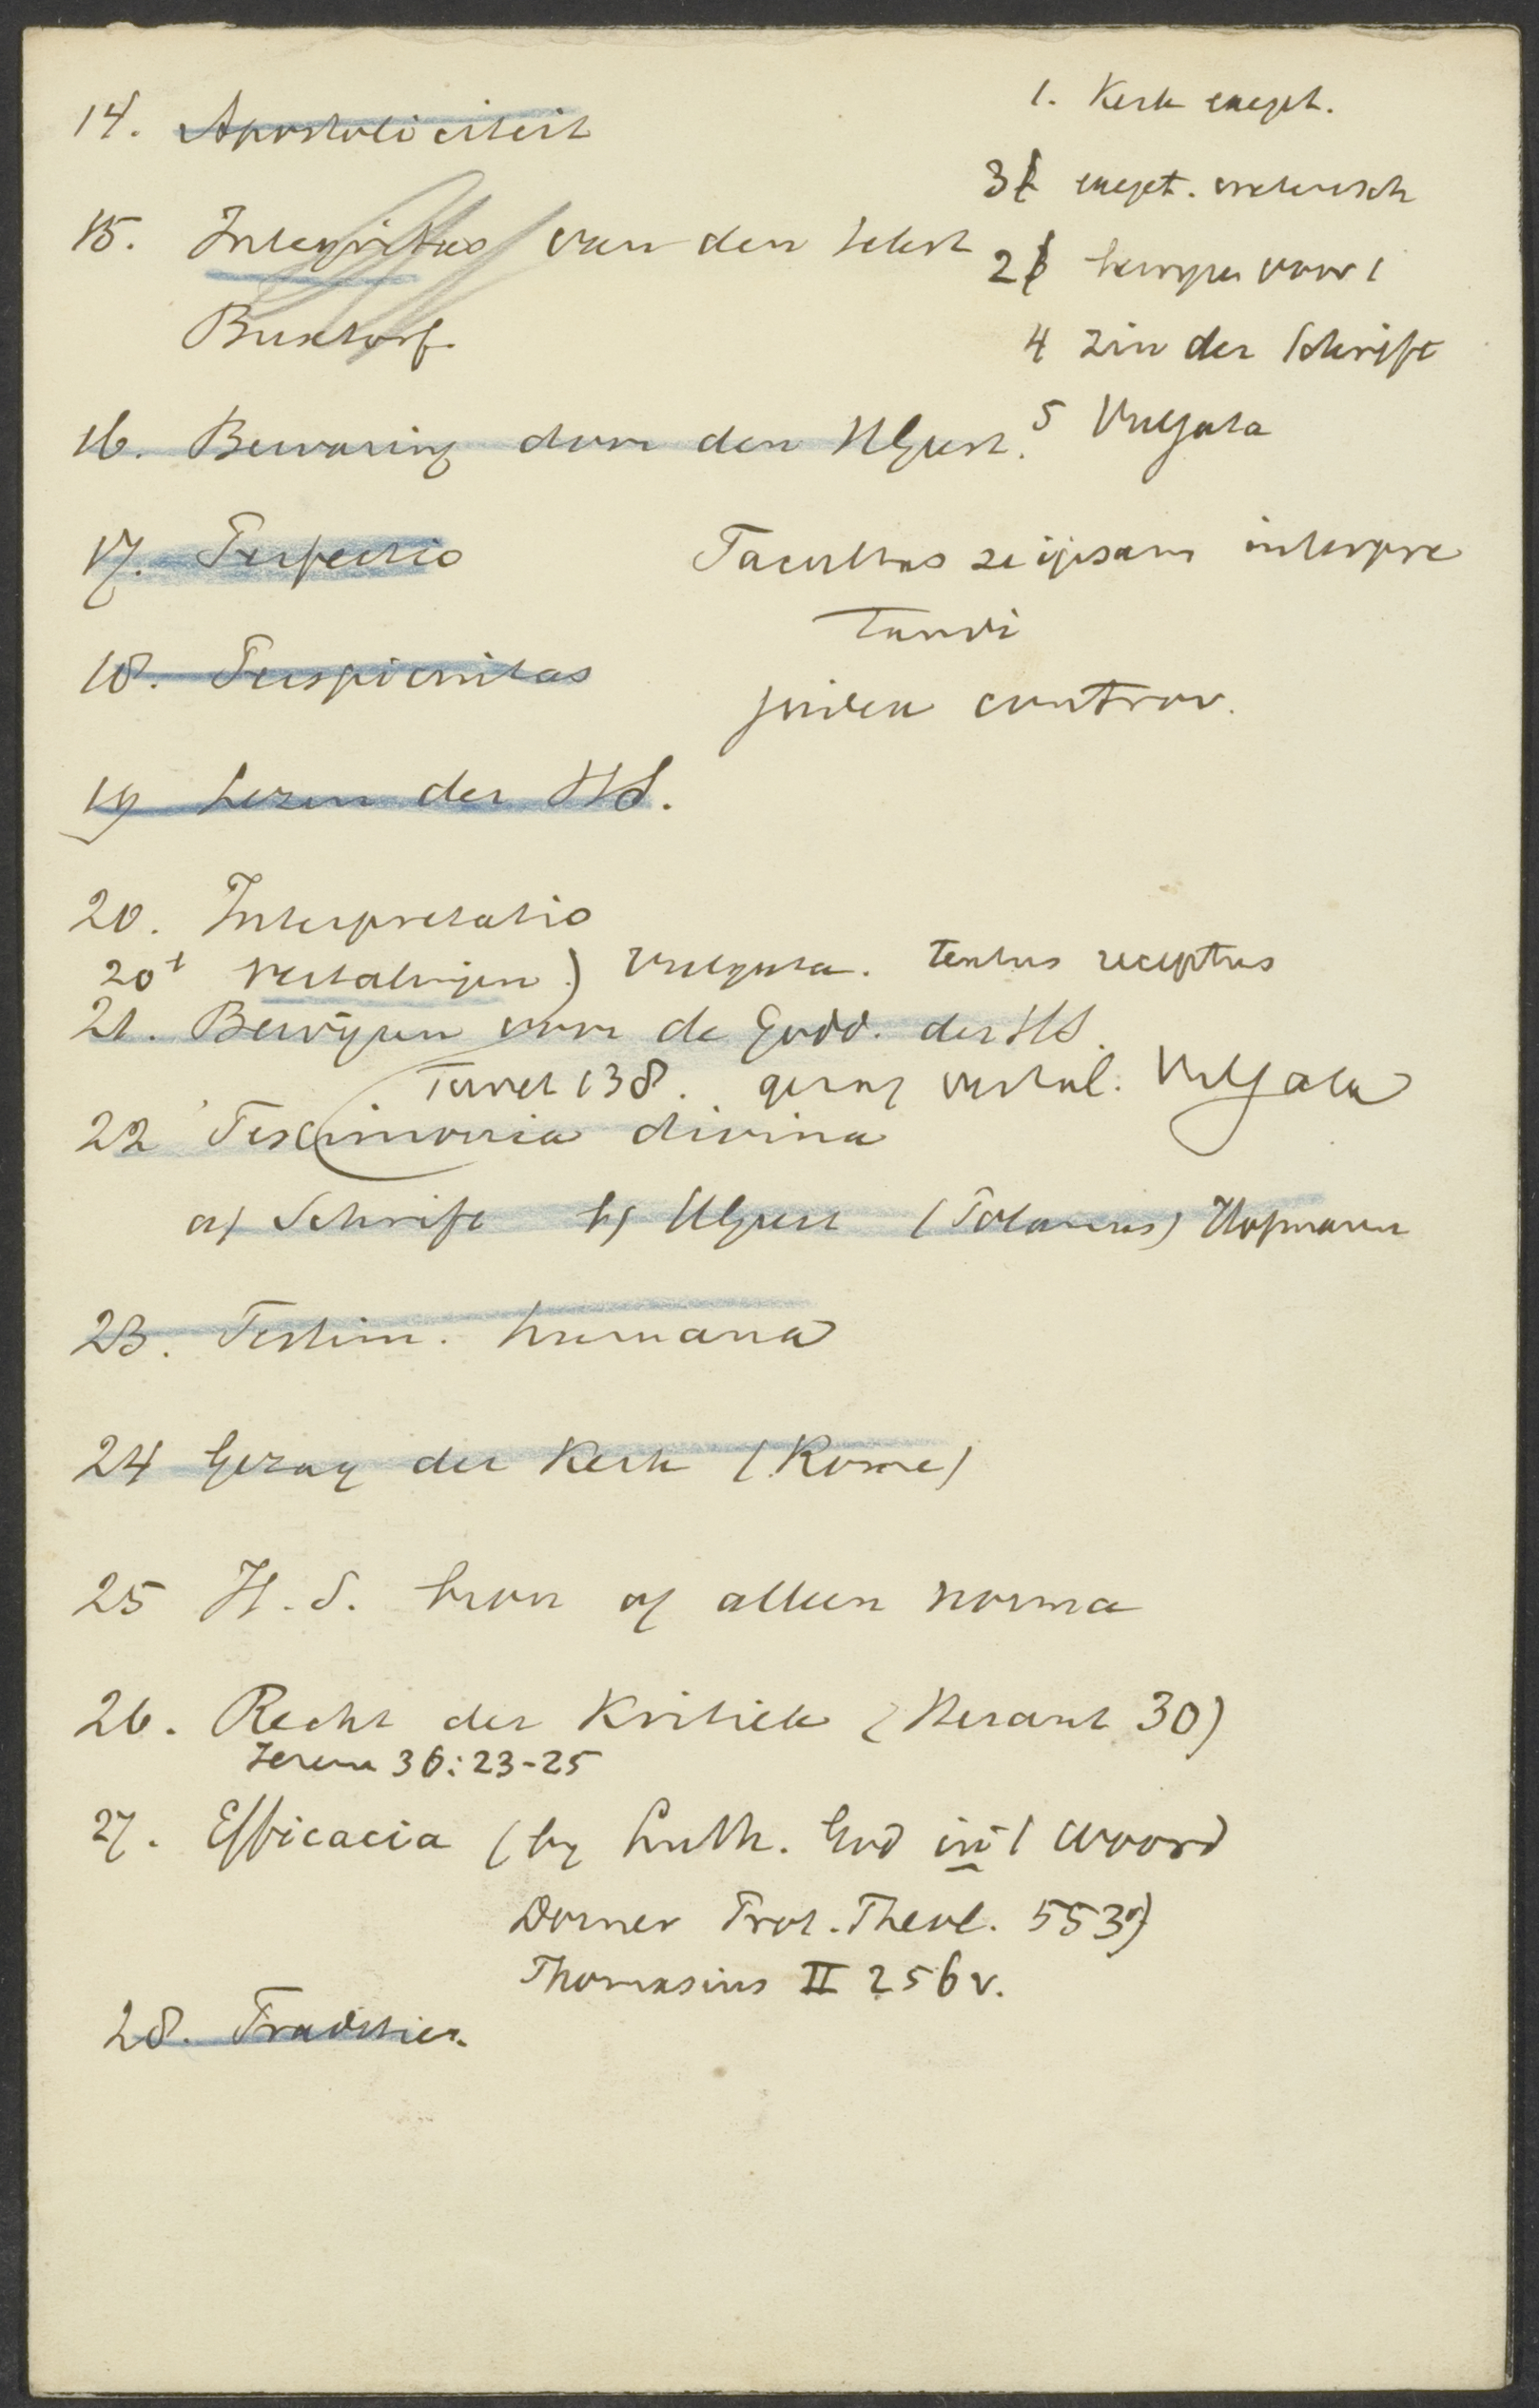 14. Apostoliciteit
15. Integritas van den tekst
Buxtorf.
16. Bewaring door den HGeest.
17. Perfectio
18. Perspicuitas
19 Lezen der HS.
1. Kerk exeget.
3 exeget.
2 bewijzen voor 1
4 zin der Schrift
5 Vulgata
Facultas se ipsam interpre
tandi
judex controv.
20. Interpretatio
20 Vertalingen) Vulgata. Textus receptus
21. Bewijzen voor de Godd. der HS.
Turret 138. gezag vertal. Vulgata
22 Testimonia divina
a) Schrift b) HGeest (Polanus) Hofmann
23. Testim. humana
24 Gezag der Kerk (Rome)
25 H. S. bron of alleen norma
26. Recht der Kritiek (Heraut 30)
Jerem 36:23-25
27. Efficacia (by Luth. God in 't woord
Dorner Prot. Theol. 553)
Thomasius II 256 v.
28. Traditie.